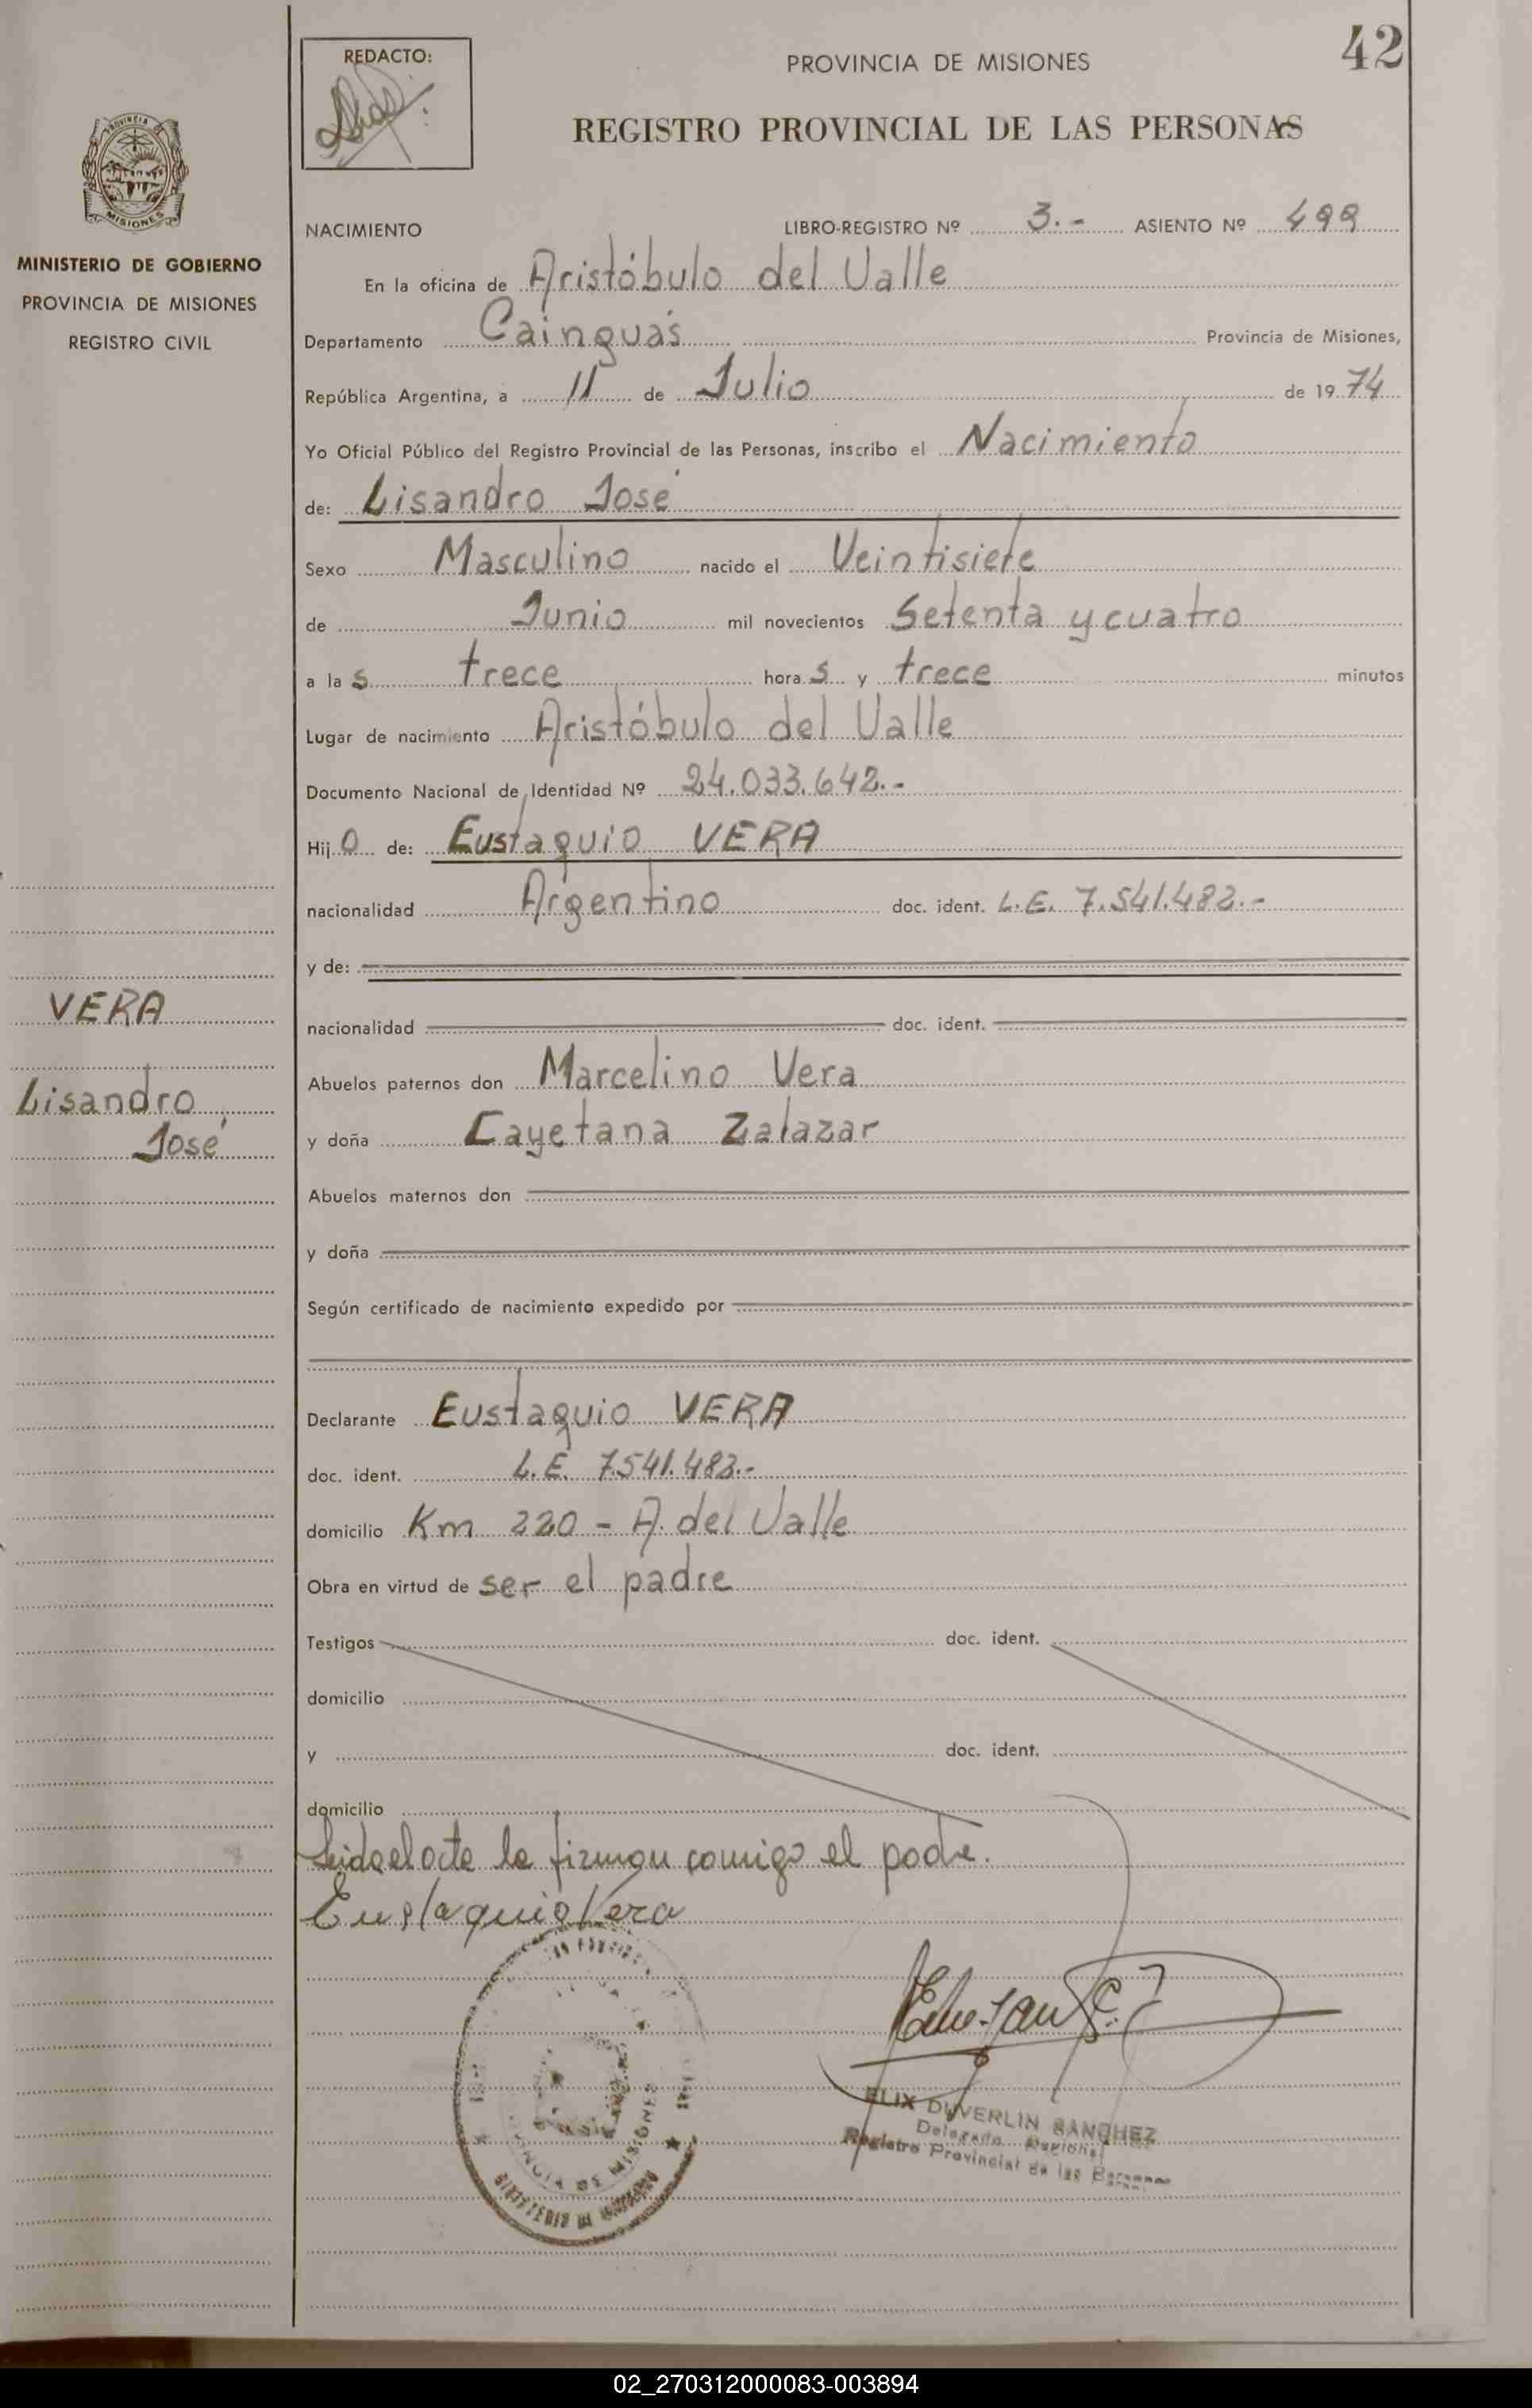 42
REDACTO:
PROVINCIA DE MISIONES
REGISTRO PROVINCIAL DE LAS PERSONAS
PROVINCIA
MISIONES
MINISTERIO DE GOBIERNO
PROVINCIA DE MISIONES
REGISTRO CIVIL
NACIMIENTO LIBRO-REGISTRO Nº 3.- ASIENTO Nº 499
En la oficina de Aristóbulo del Valle
Departamento Cainguás Provincia de Misiones,
República Argentina, a 11 de Julio de 1974
Yo Oficial Público del Registro Provincial de las Personas, inscribo el Nacimiento
de: Lisandro José
Sexo Masculino nacido el Veintisiete
de Junio mil novecientos Setenta y cuatro
a las trece horas y trece minutos
Lugar de nacimiento Aristóbulo del Valle
Documento Nacional de Identidad Nº 24.033.642.-
Hijo de: Eustaquio VERA
nacionalidad Argentino doc. ident. L.E. 7.541.482.-
y de:
nacionalidad doc. ident.
Abuelos paternos don Marcelino Vera
y doña Cayetana Zalazar
Abuelos maternos don
y doña
Según certificado de nacimiento expedido por
Declarante Eustaquio VERA
doc. ident. L.E. 7.541.482.-
domicilio Km 220 - A. del Valle
Obra en virtud de ser el padre
Testigos doc. ident.
domicilio
y doc. ident.
domicilio
Leida el acta la firman comigo el padre.
Eustaquio Vera
VERA
Lisandro
José
ELIX DUVERLIN SANCHEZ
Delegado
Registro Provincial de las Personas
DE MISIONES
02_270312000083-003894